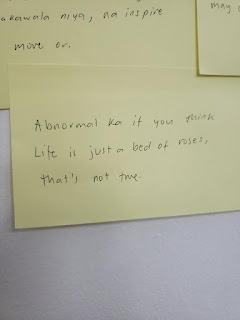 akawala niya, na inspire
move on.
may
Abnormal ka if you think
Life is just a bed of roses,
that's not true.